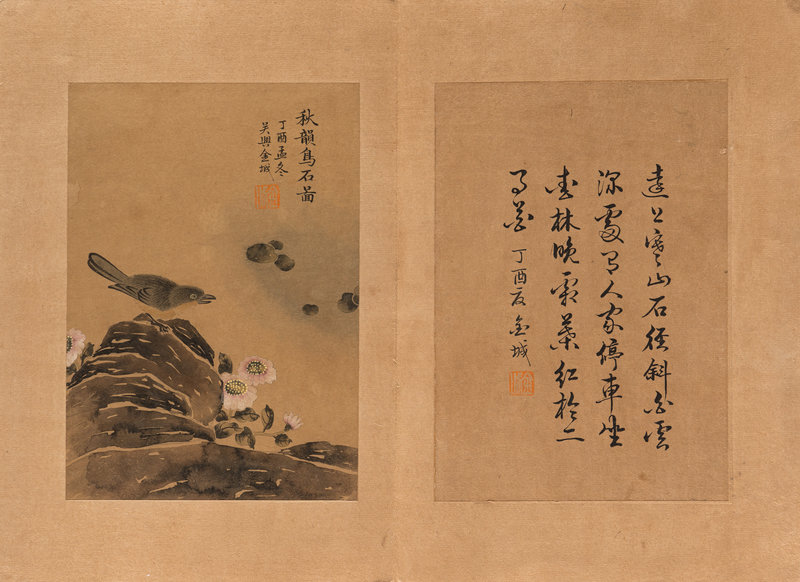 遠上寒山石徑斜白雲
深處有人家停車坐
愛林晚霜葉紅於二
月花 丁酉夏 金城
秋韻鳥石啚
丁酉孟冬
吴興金城